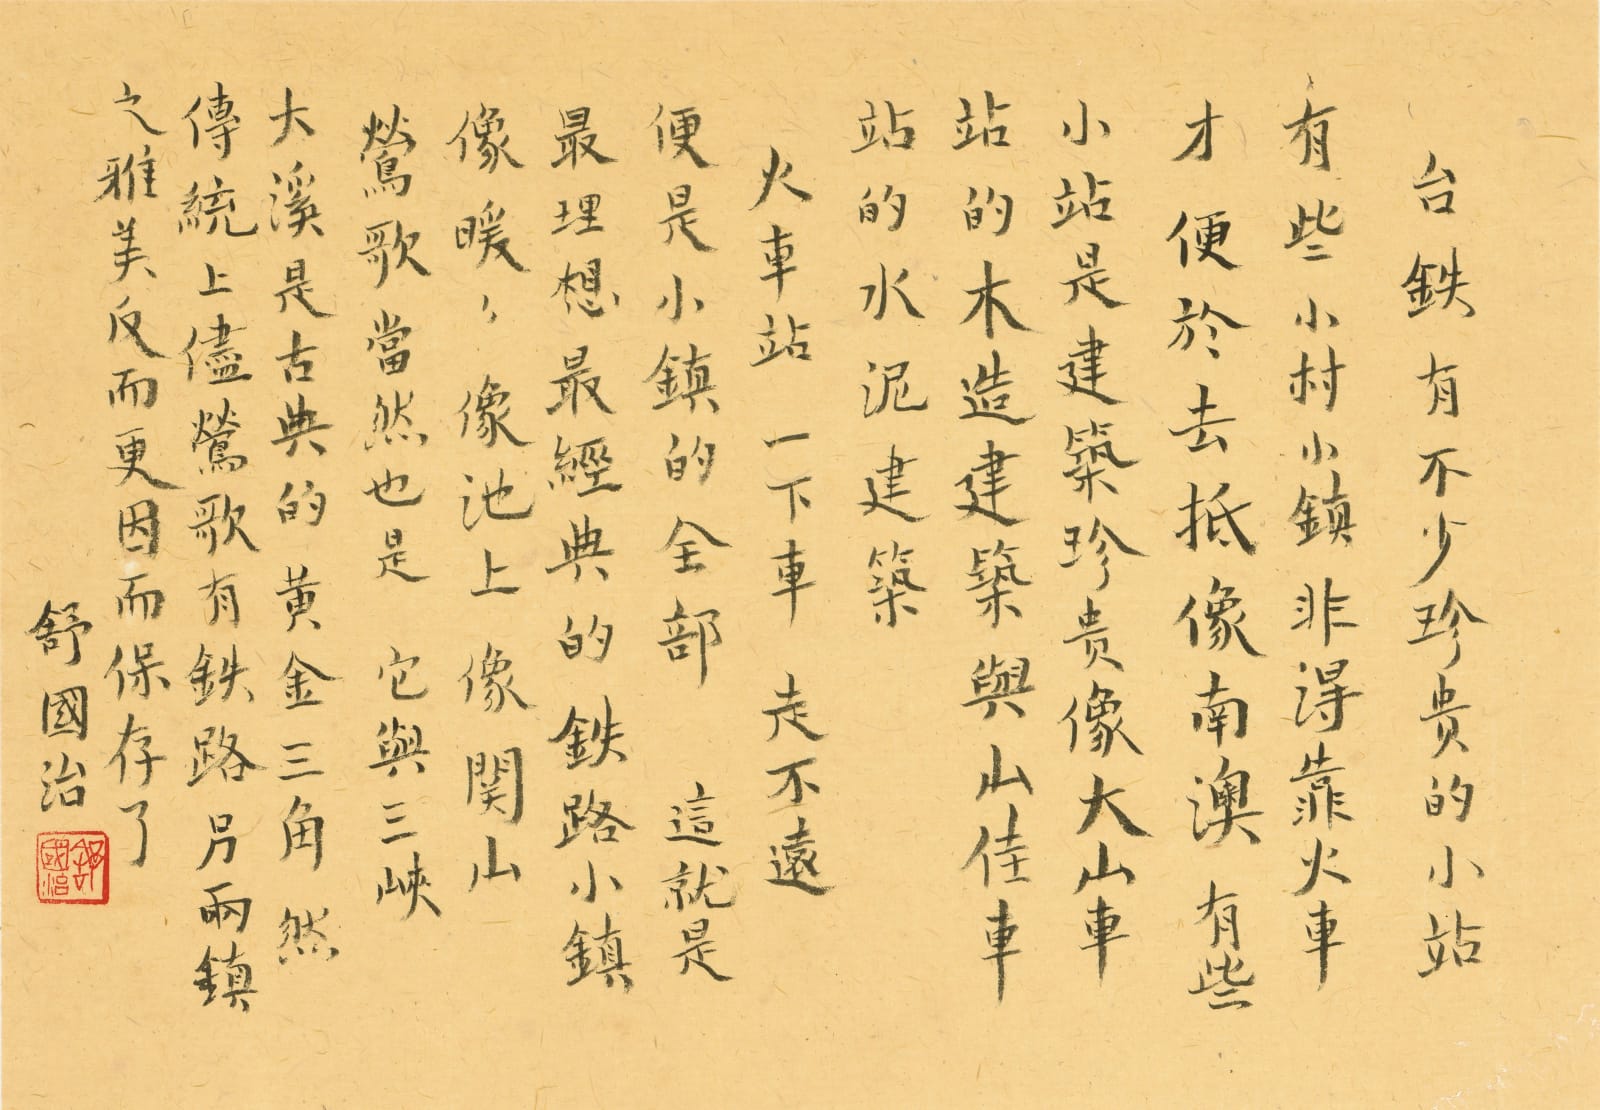 台鉄有不少珍贵的小站
有些小村小鎮非得靠火車
才便於去抵像南澳 有些
小站是建築珍贵像大山車
站的木造建築與山佳車
站的水泥建築
火車站一下車 走不遠
便是小鎮的全部 這就是
最理想最經典的鉄路小鎮
像暖〻像池上像関山
鶯歌當然也是 它與三峽
大溪是古典的黄金三角 然
傳統上儘鶯歌有鉄路另兩鎮
之雅美反而更因而保存了
舒國治
舒國治